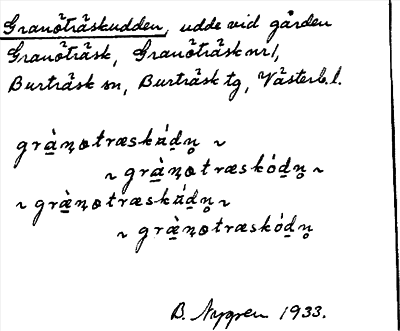 Granöträskudden, udde vid gården
Granöträsk, Granöträsk nr 1,
Burträsk sn, Burträsk tg, Västerb. l.
grànotræskúdn ~
~ grànotræskódn ~
~ grànotræskúdn ~
~ grànotræskódn
B. Nygren 1933.